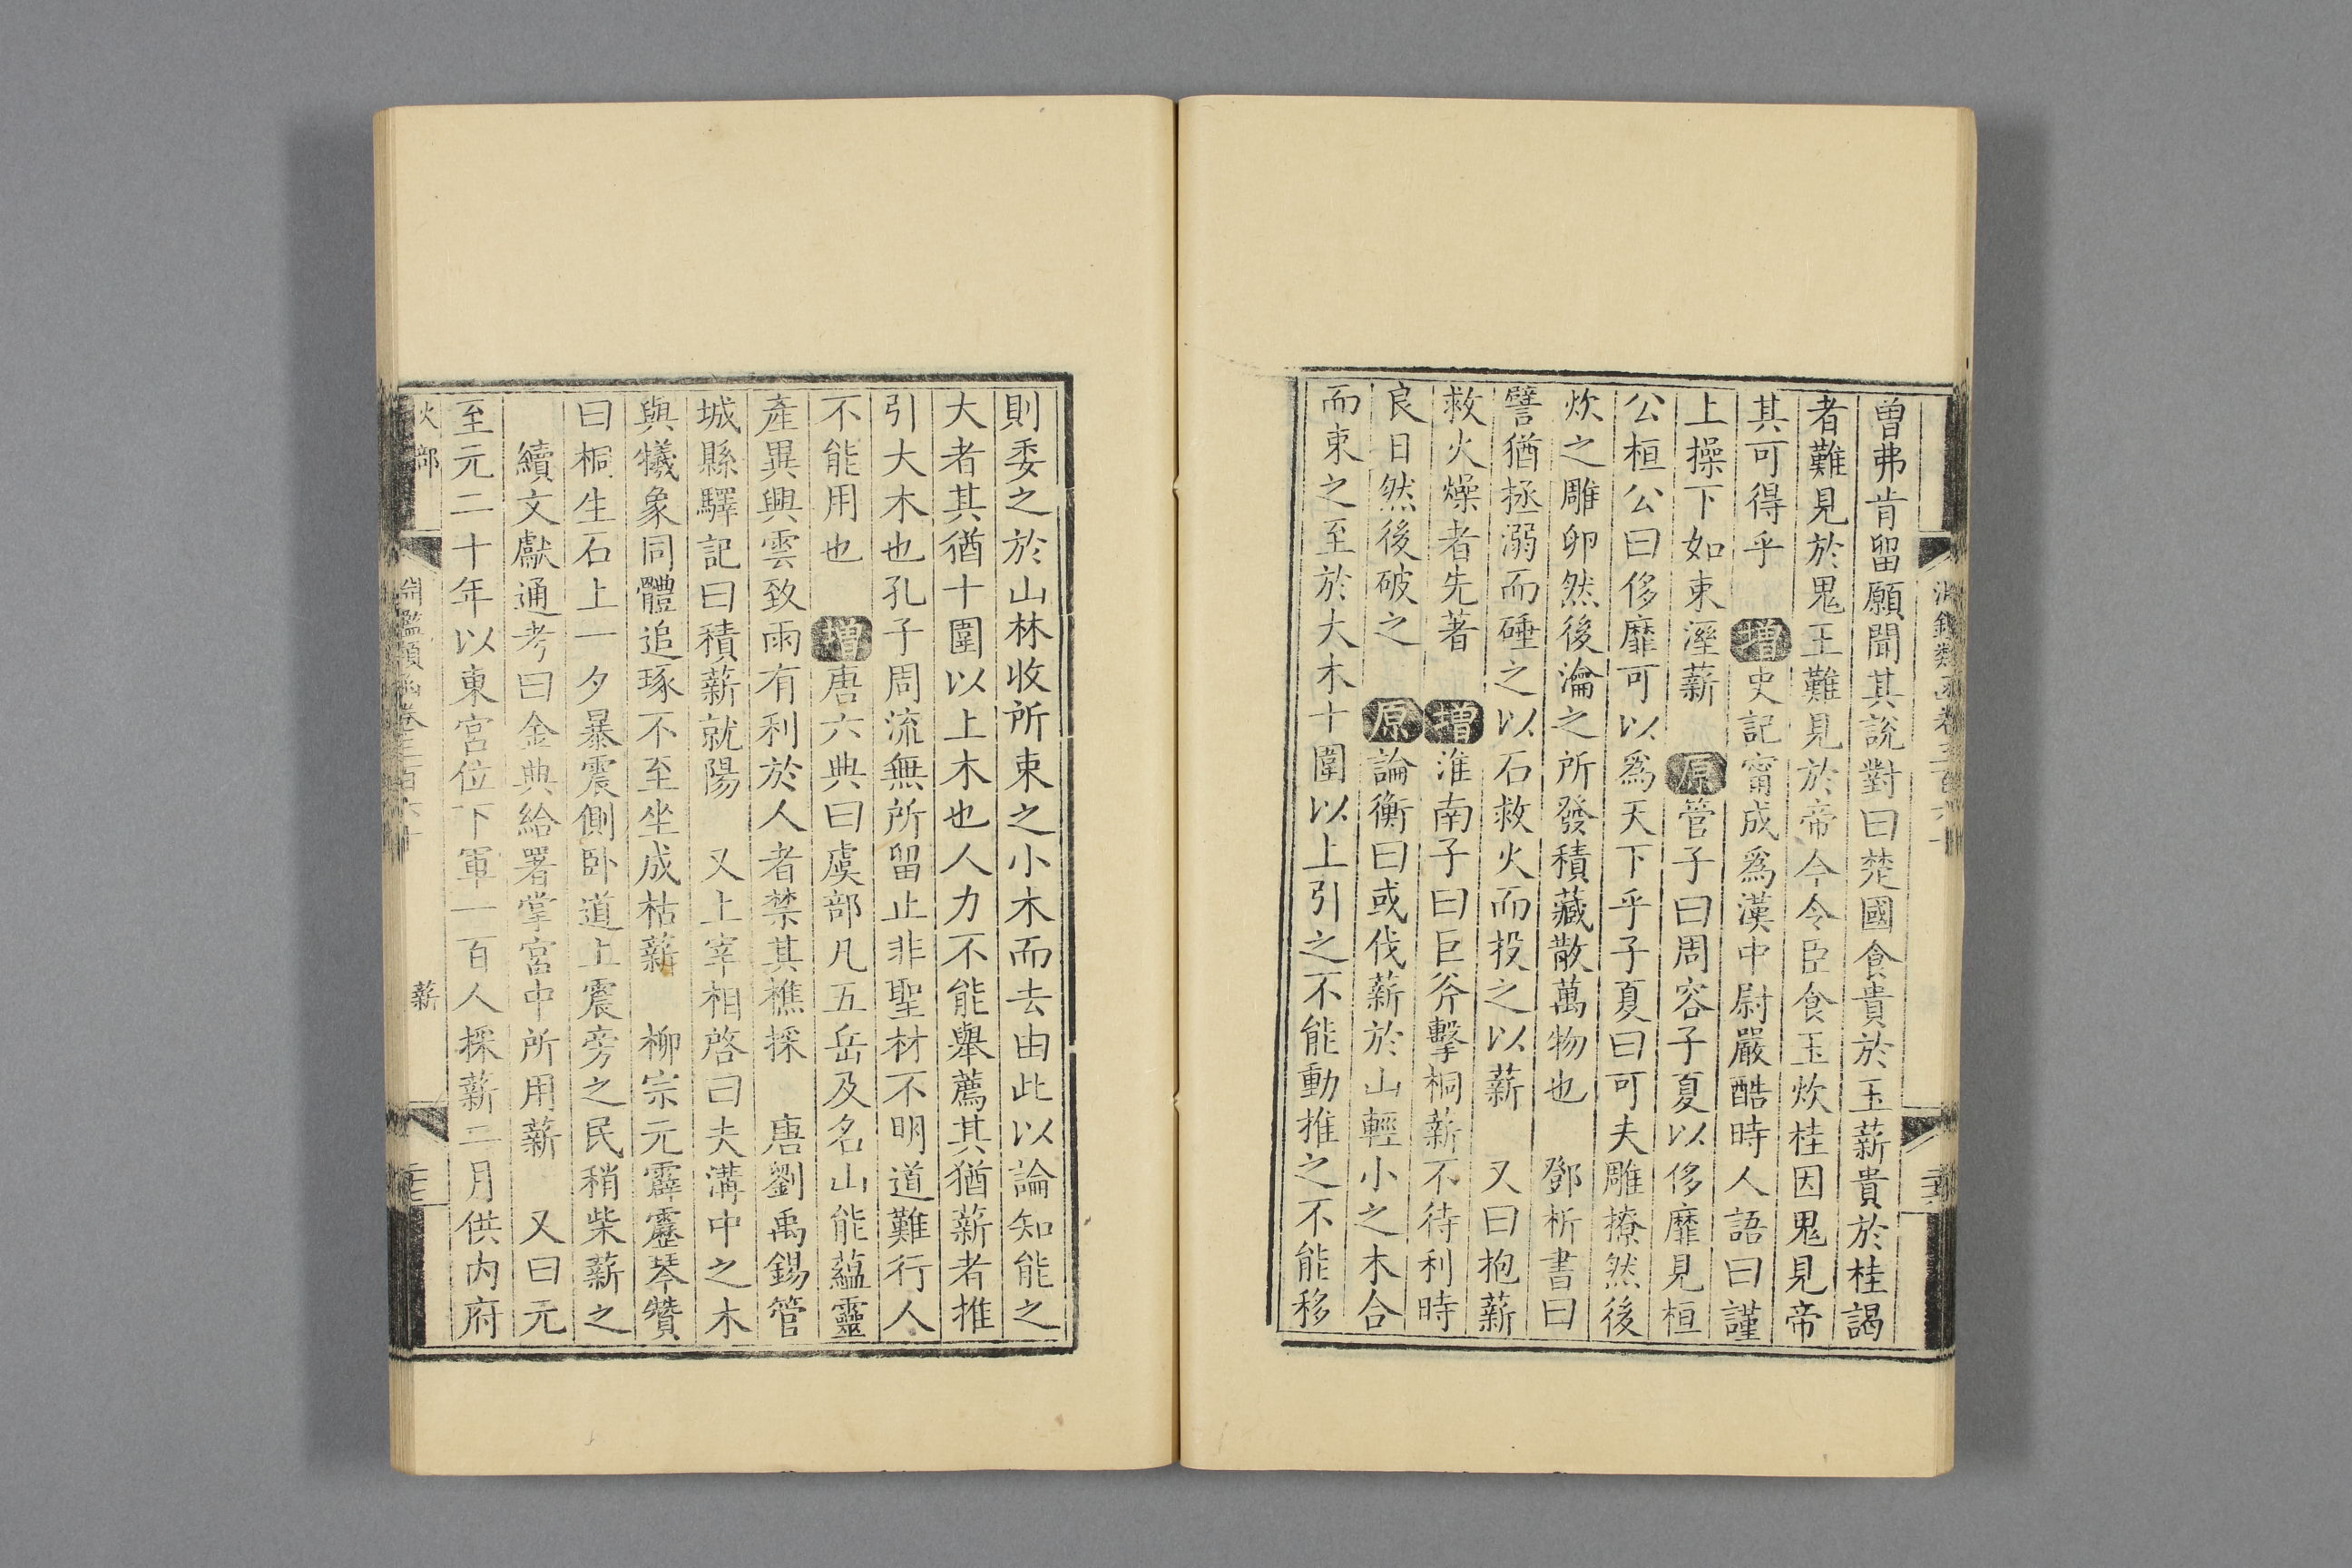 曾弗肯留願聞其說對曰楚國食貴於玉薪貴於桂謁
者難見於鬼王難見於帝今令臣食玉炊桂因鬼見帝
其可得乎 增史記甯成爲漢中尉嚴酷時人語曰謹
上操下如束溼薪 原管子曰周容子夏以侈靡見桓
公桓公曰侈靡可以爲天下乎子夏曰可夫雕橑然後
炊之雕卵然後瀹之所發積藏散萬物也 鄧析書曰
譬猶拯溺而硾之以石救火而投之以薪 又曰抱薪
救火燥者先著 增淮南子曰巨斧擊桐薪不待利時
良日然後破之 原論衡曰或伐薪於山輕小之木合
而束之至於大木十圍以上引之不能動推之不能移
則委之於山林收所束之小木而去由此以論知能之
大者其猶十圍以上木也人力不能舉薦其猶薪者推
引大木也孔子周流無所留止非聖材不明道難行人
不能用也 增唐六典曰虞部凡五岳及名山能蘊靈
產異興雲致雨有利於人者禁其樵採 唐劉禹錫管
城縣驛記曰積薪就陽 又上宰相啓曰夫溝中之木
與犧象同體追琢不至坐成枯薪 柳宗元霹靂琴贊
曰桐生石上一夕暴震側臥道上震旁之民稍柴薪之
續文獻通考曰金典給署掌宮中所用薪 又曰元
至元二十年以東宮位下軍一百人採薪二月供內府
火部
淵鑑類函卷三百六十
薪